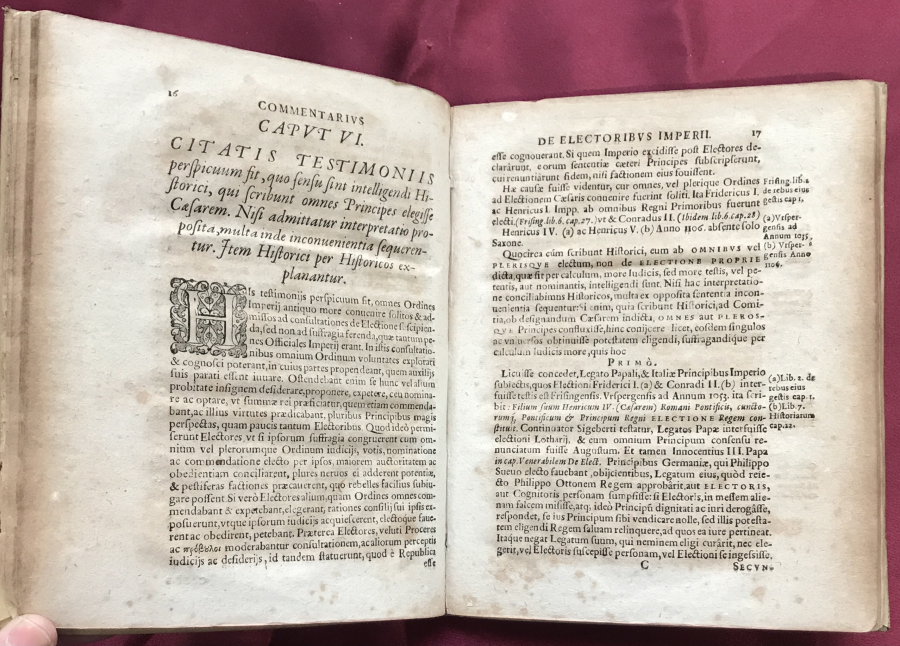 16
COMMENTARIVS
CAPVT VI.
CITATIS TESTIMONIIS
perspicuum fit, quo sensu sint intelligendi Hi-
storici, qui scribunt omnes Principes elegisse
Cæsarem. Nisi admittatur interpretatio pro-
posita, multa inde inconuenientia sequeren-
tur. Item Historici per Historicos ex-
planantur.
HIs testimonijs perspicuum fit, omnes Ordines
Imperij antiquo more conuenire solitos & ad-
missos ad consultationes de Electione suscipien-
da, sed non ad suffragia ferenda, quæ tantum pe-
nes Officiales Imperij erant. In istis consultatio-
nibus omnium Ordinum voluntates explorari
& cognosci poterant, in cuius partes propenderent, quem auxilijs
suis parati essent iuuare. Ostendebant enim se hunc vel alium
probitate insignem desiderare, proponere, expetere, ceu nomina-
re ac optare, vt summæ rei præficiatur, quem etiam commenda-
bant, ac illius virtutes prædicabant, pluribus Principibus magis
perspectas, quam paucis tantum Electoribus. Quod ideò permi-
serunt Electores, vt si ipsorum suffragia congruerent cum om-
nium vel plerorumque Ordinum iudicijs, votis, nominatione
ac commendatione electo per ipsos, maiorem auctoritatem ac
obedientiam conciliarent, plures neruos ei adderent potentiæ,
& pestiferas factiones præcauerent, quò rebelles facilius subiu-
gare possent. Si verò Electores alium, quam Ordines omnes com-
mendabant & expetebant, elegerant, rationes consilij sui ipsis ex-
posuerunt, vtque ipsorum iudicijs acquiescerent, electoque faue-
rent ac obedirent, petebant. Præterea Electores, veluti Proceres
ac πρόβουλοι moderabantur consultationem, ac aliorum perceptis
iudicijs ac desiderijs, id tandem statuerunt, quod è Republica
esse
DE ELECTORIBVS IMPERII. 17
esse cognouerant. Si quem Imperio excidisse post Electores de-
clarârunt, eorum sententiæ cæteri Principes subscripserunt,
cui renuntiârunt fidem, nisi factionem eius fouissent.
Hæ causæ fuisse videntur, cur omnes, vel plerique Ordines
ad Electionem Cæsaris conuenire fuerint soliti. Ita Friderícus I.
ac Henricus I. Impp. ab omnibus Regni Primoribus fuerunt
electi. (Frising. lib. 6. cap. 27.) vt & Conradus II. (Ibidem lib. 6. cap. 28)
Henricus IV. (a) ac Henricus V. (b) Anno 1106. absente solo
Saxone.
Frising. lib. 2
de rebus eius
gestis cap 1.
(a) Vrsper-
gensis ad
Annum 1055.
(b) Vrsper-
gensis Anno
1106.
Quocirca cùm scribunt Historici, eum ab OMNIBVS vel
PLERISQVE electum, non de ELECTIONE PROPRIE
dicta, quæ fit per calculum, more Iudicis, sed more testis, vel pe-
tentis, aut nominantis, intelligendi sunt. Nisi hac interpretatio-
ne conciliabimus Historicos, multa ex opposita sententia incon-
uenientia sequentur. Si enim, quia scribunt Historici, ad Comi-
tia, ob designandum Cæsarem indicta, OMNES aut PLEROS-
QVE Principes confluxisse, hinc conijcere licet, eosdem singulos
ac vniuersos obtinuisse potestatem eligendi, suffragandique per
calculum iudicis more, quis hoc
PRIMO.
Licuisse concedet, Legato Papali, & Italiæ Principibus Imperio
subiectis, quos Electioni Friderici I. (a) & Conradi II. (b) inter-
fuisse testis est Frisingensis. Vrspergensis ad Annum 1053. ita scri-
bit: Filium suum Henricum IV. (Cæsarem) Romani Pontificis, cuncto-
rumq, Pontificum & Principum Regni ELECTIONE Regem con-
stituit. Continuator Sigeberti testatur, Legatos Papæ interfuisse
electioni Lotharij, & eum omnium Principum consensu re-
nunciatum fuisse Augustum. Et tamen Innocentius III. Papa
in cap. Venerabilem De Elect. Principibus Germaniæ, qui Philippo
Sueuo electo fauebant, obijcientibus, Legatum eius, quòd reie-
cto Philippo Ottonem Regem approbârit, aut ELECTORIS,
aut Cognitoris personam sumpsisse: si Electoris, in messem alie-
nam falcem misisse, atq. ideò Principũ dignitati ac iuri derogâsse,
respondet, se ius Principum sibi vendicare nolle, sed illis potesta-
tem eligendi Regem saluam relinquere, ad quos ea iure pertineat.
Itaque negat Legatum suum, qui neminem eligi curârit, nec ele-
gerit, vel Electoris suscepisse personam, vel Electioni se ingessisse.
(a) Lib. 2. de
rebus eius
gestis cap. 1.
(b) Lib. 7.
Historiarum
cap. 22.
C
SECVN-